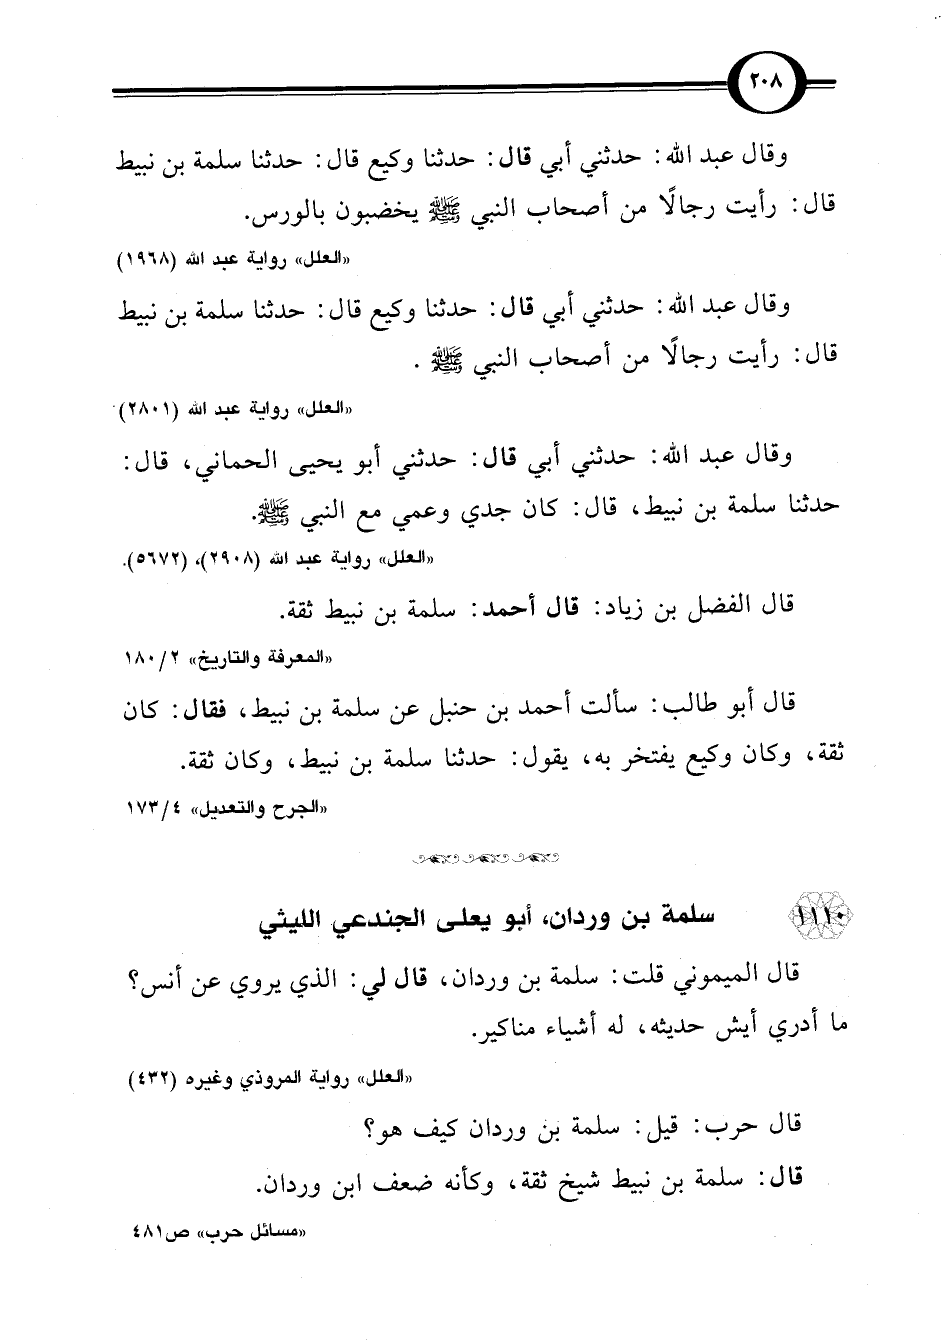 ٢٠٨
وقال عبد الله: حدثني أبي قال: حدثنا وكيع قال: حدثنا سلمة بن نبيط
قال: رأيت رجالًا من أصحاب النبي ﷺ يخضبون بالورس.
«العلل» رواية عبد الله (١٩٦٨)
وقال عبد الله: حدثني أبي قال: حدثنا وكيع قال: حدثنا سلمة بن نبيط
قال: رأيت رجالًا من أصحاب النبي ﷺ .
«العلل» رواية عبد الله (٢٨٠١)
وقال عبد الله: حدثني أبي قال: حدثني أبو يحيى الحماني، قال:
حدثنا سلمة بن نبيط، قال: كان جدي وعمي مع النبي ﷺ.
«العلل» رواية عبد الله (٢٩٠٨)، (٥٦٧٢).
قال الفضل بن زياد: قال أحمد: سلمة بن نبيط ثقة.
«المعرفة والتاريخ» ٢/ ١٨٠
قال أبو طالب: سألت أحمد بن حنبل عن سلمة بن نبيط، فقال: كان
ثقة، وكان وكيع يفتخر به، يقول: حدثنا سلمة بن نبيط، وكان ثقة.
«الجرح والتعديل» ٤/ ١٧٣
١١١٠ سلمة بن وردان، أبو يعلى الجندعي الليثي
قال الميموني قلت: سلمة بن وردان، قال لي: الذي يروي عن أنس؟
ما أدري أيش حديثه، له أشياء مناكير.
«العلل» رواية المروذي وغيره (٤٣٢)
قال حرب: قيل: سلمة بن وردان كيف هو؟
قال: سلمة بن نبيط شيخ ثقة، وكأنه ضعف ابن وردان.
«مسائل حرب» ص٤٨١